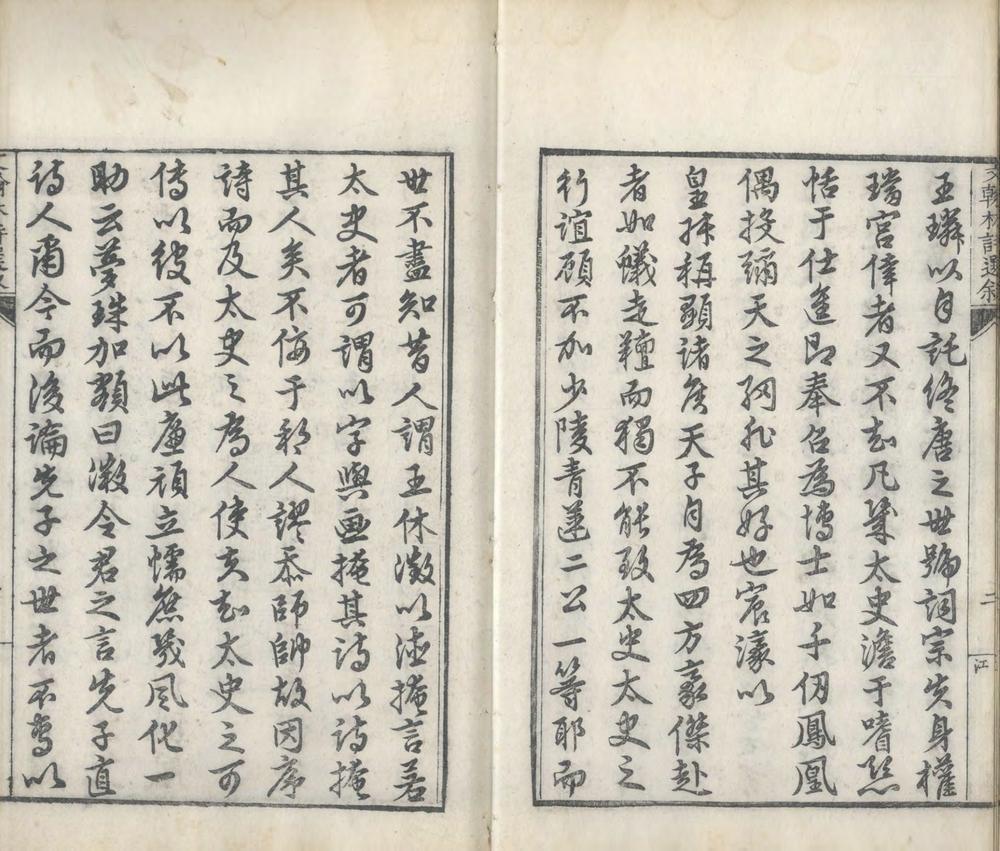 文翰林詩選叙
二
江
王璘以自託終唐之世號詞宗失身權
璫宮偉者又不知凡幾太史澹于嗜慾
恬于仕進即奉召為博士如千仞鳳凰
偶投彌天之網非其好也宸濠以
皇孫稱顯諸侯天子自為四方豪傑赴
者如蟻走羶而獨不能致太史太史之
行誼顧不加少陵青蓮二公一等耶而
世不盡知昔人謂王休徵以德掩言若
太史者可謂以字與画掩其詩以詩掩
其人矣不佞于郡人謬忝師帥故因序
詩而及太史之為人使夫知太史之可
傳以彼不以此廉頑立懦庶幾風化一
助云夢珠加額曰微令君之言先子直
詩人爾今而後論先子之世者不啻以